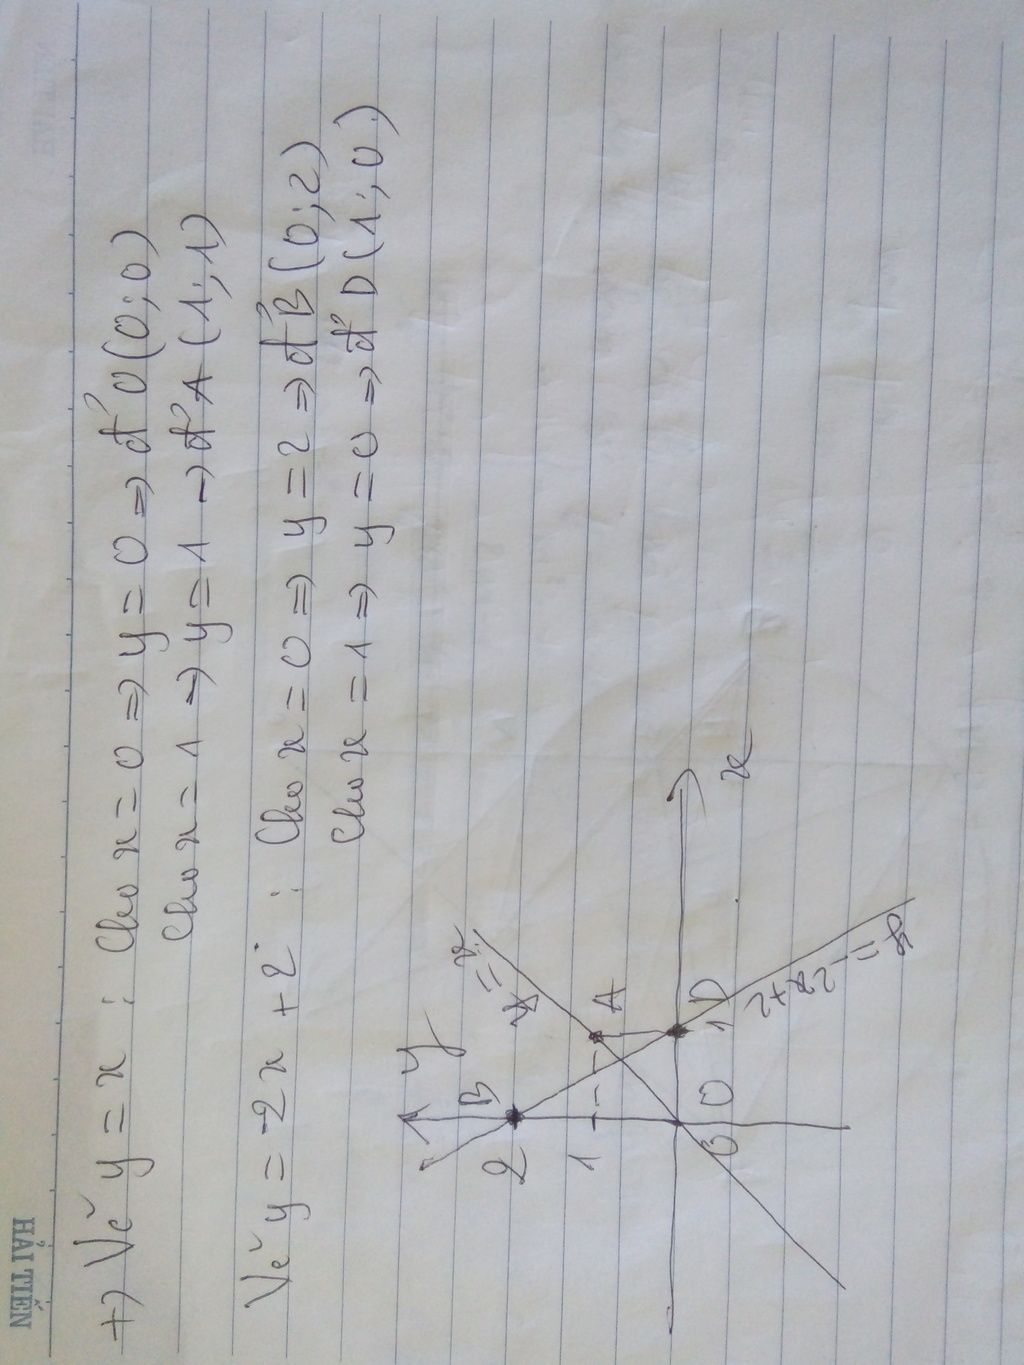 HẢI TIẾN
+) Vẽ y = x : Cho x = 0 => y = 0 => đ² O (0; 0)
Cho x = 1 => y = 1 => đ² A (1; 1)
Vẽ y = -2x + 2 : Cho x = 0 => y = 2 => đ² B (0; 2)
Cho x = 1 => y = 0 => đ² D (1; 0)
y
y = x
2 B
1 A
0 O 1 D
x
y = -2x+2